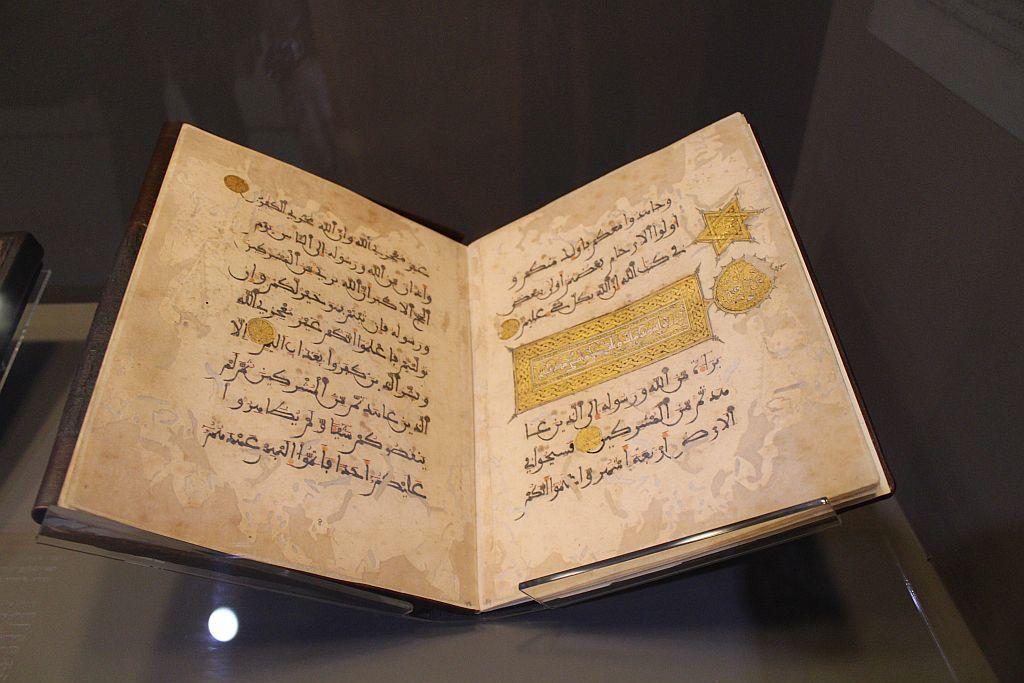 وجهدوا معكم فأولئك منكم و
أولوا الأرحام بعضهم أولى ببعض
في كتب الله إن الله بكل شيء عليم
براءة من الله ورسوله إلى الذين عا
هدتم من المشركين فسيحوا في
الأرض أربعة أشهر واعلموا أنكم
غير معجزي الله وأن الله مخزي الكفرين
وأذان من الله ورسوله إلى الناس يوم
الحج الأكبر أن الله بريء من المشركين
ورسوله فإن تبتم فهو خير لكم وإن
توليتم فاعلموا أنكم غير معجزي الله
وبشر الذين كفروا بعذاب أليم إلا
الذين عاهدتم من المشركين ثم لم
ينقصوكم شيئا ولم يظاهروا
عليكم أحدا فأتموا إليهم عهدهم